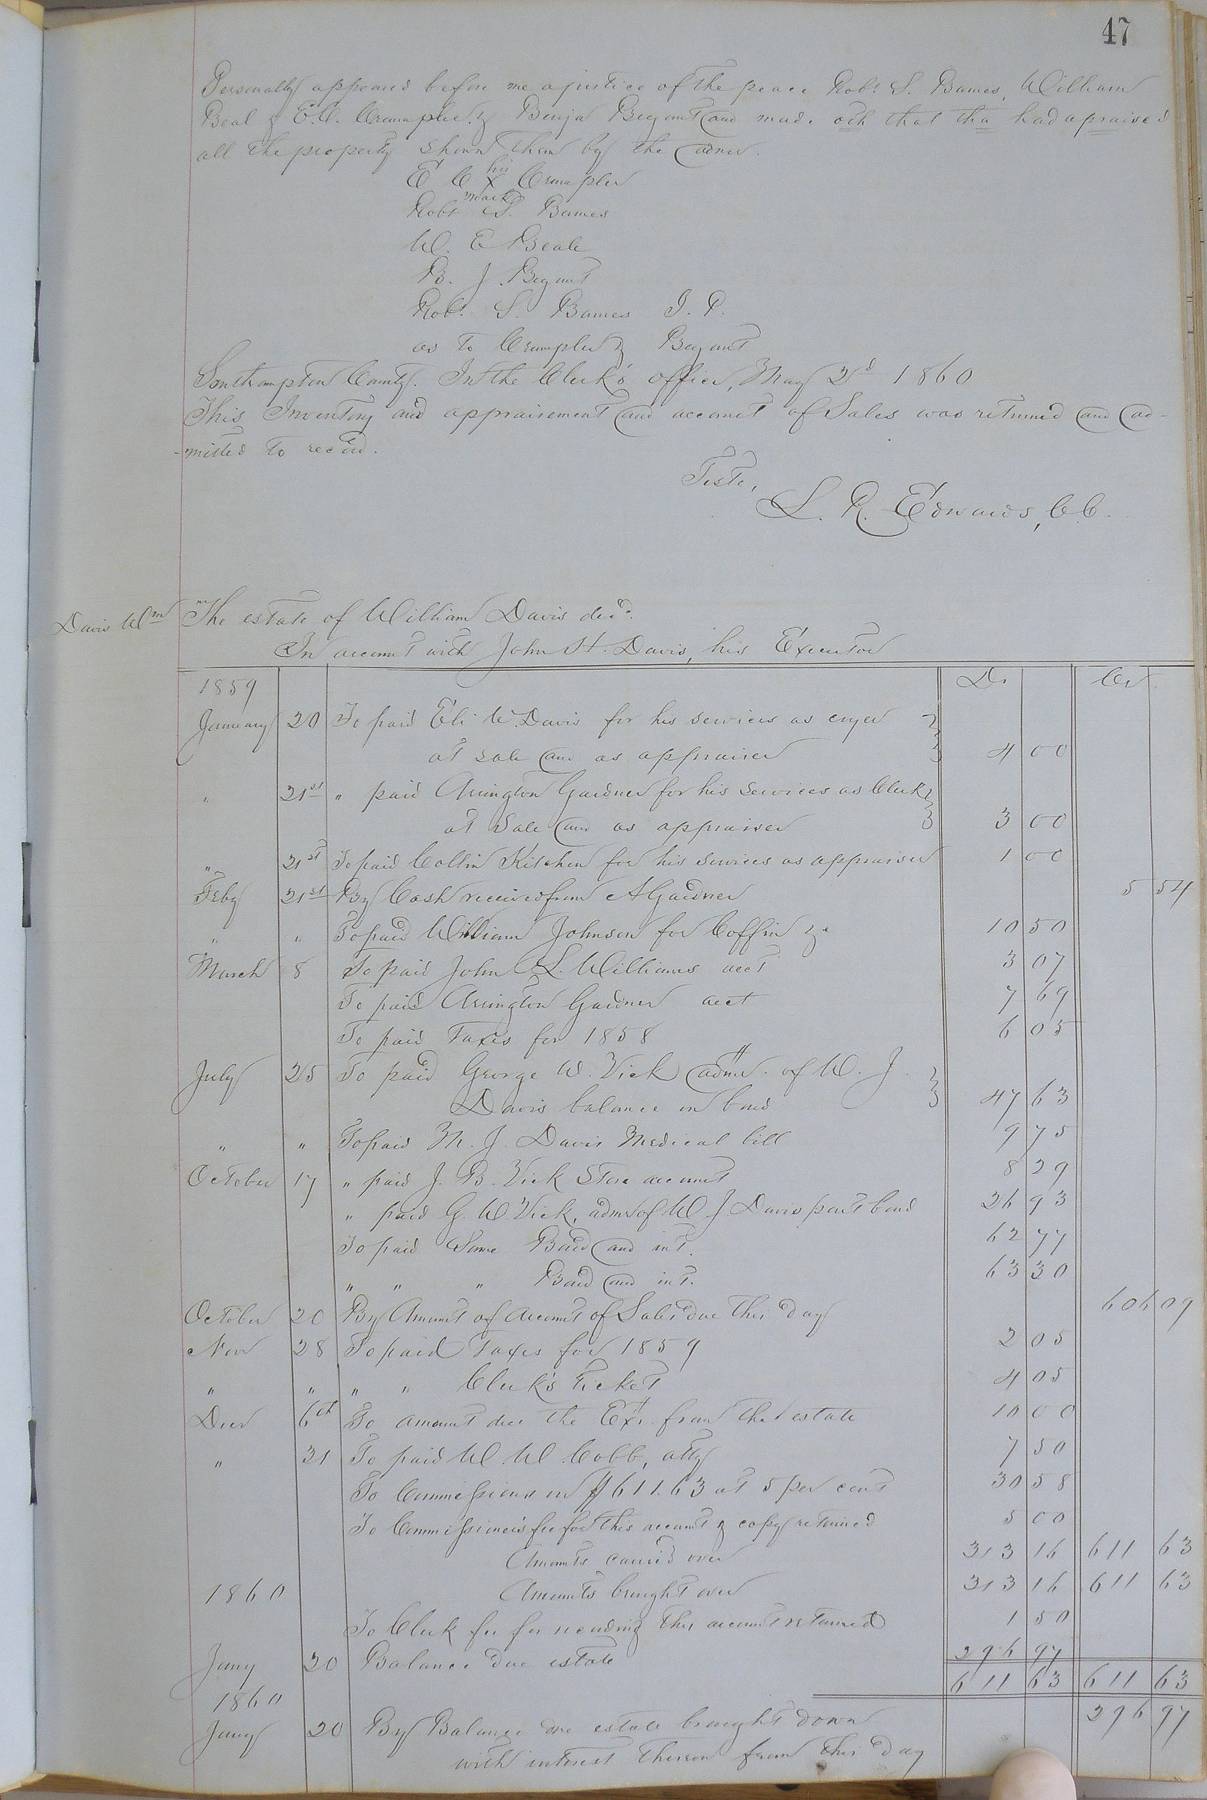 47
Personally appeared before me a justice of the peace Robt. S. Barnes, William
Beal & E.C. Crumpler & Benja Bryant and made oth that tha had apraised
all the property shown them by the admr.
E C his x mark Crumpler
Robt S. Barnes
W. E Beale
B. J. Bryant
Robt. S. Barnes J. P.
as to Crumpler & Bryant
Southampton County. In the Clerk's office, May 2d 1860
This Inventory and appraisement and account of Sales was returned and ad-
-mitted to record.
Teste,
L. R. Edwards, C.C.
Davis Wm
The estate of William Davis decd.
In account with John H. Davis, his Executor
1859 Dr Cr
January 20 To paid Eli W. Davis for his services as cryer
at sale and as appraiser 4 00
" 21st " paid Arrington Gardner for his services as Clerk
at Sale and as appraiser 3 00
" 21st To paid Collin Kitchen for his services as appraiser 1 00
Feby 21st By Cash received from A Gardner 5 54
" " To paid William Johnson for Coffin &c 10 50
March 8 To paid John L. Williams acct 3 07
To paid Arrington Gardner acct 7 69
To paid Taxes for 1858 6 05
July 25 To paid George W. Vick admr. of W. J.
Davis balance on bond 47 63
" " To paid M. J. Davis Medical bill 9 75
October 17 " paid J. B. Vick Store account 8 29
" paid G. W Vick, admr of W J Davis part bond 26 93
To paid Same Bond and int. 62 77
" " " Bond and int. 63 30
October 20 By Amount of Account of Sales due this day 606 09
Nov 28 To paid Taxes for 1859 2 05
" " " " Clerk's Ticket 4 05
Decr 6th To amount due the Exr. from the estate 10 00
" 31 To paid W W. Cobb, atty 7 50
To Commissions on $611.63 at 5 per cent 30 58
To Commissioner's fee for this account & copy returned 5 00
Amounts carried over 313 16 611 63
1860 Amounts brought over 313 16 611 63
To Clerk fee for recording this account returned 1 50
Jany 20 Balance due estate 296 97
611 63 611 63
1860
Jany 20 By Balance due estate brought down 296 97
with interest thereon from this day